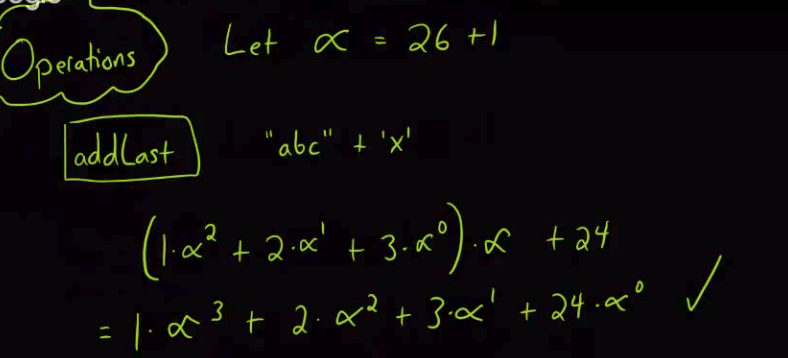 Operations
Let α = 26 + 1
addLast
"abc" + 'x'
(1·α² + 2·α¹ + 3·α⁰)·α + 24
= 1·α³ + 2·α² + 3·α¹ + 24·α⁰ ✓